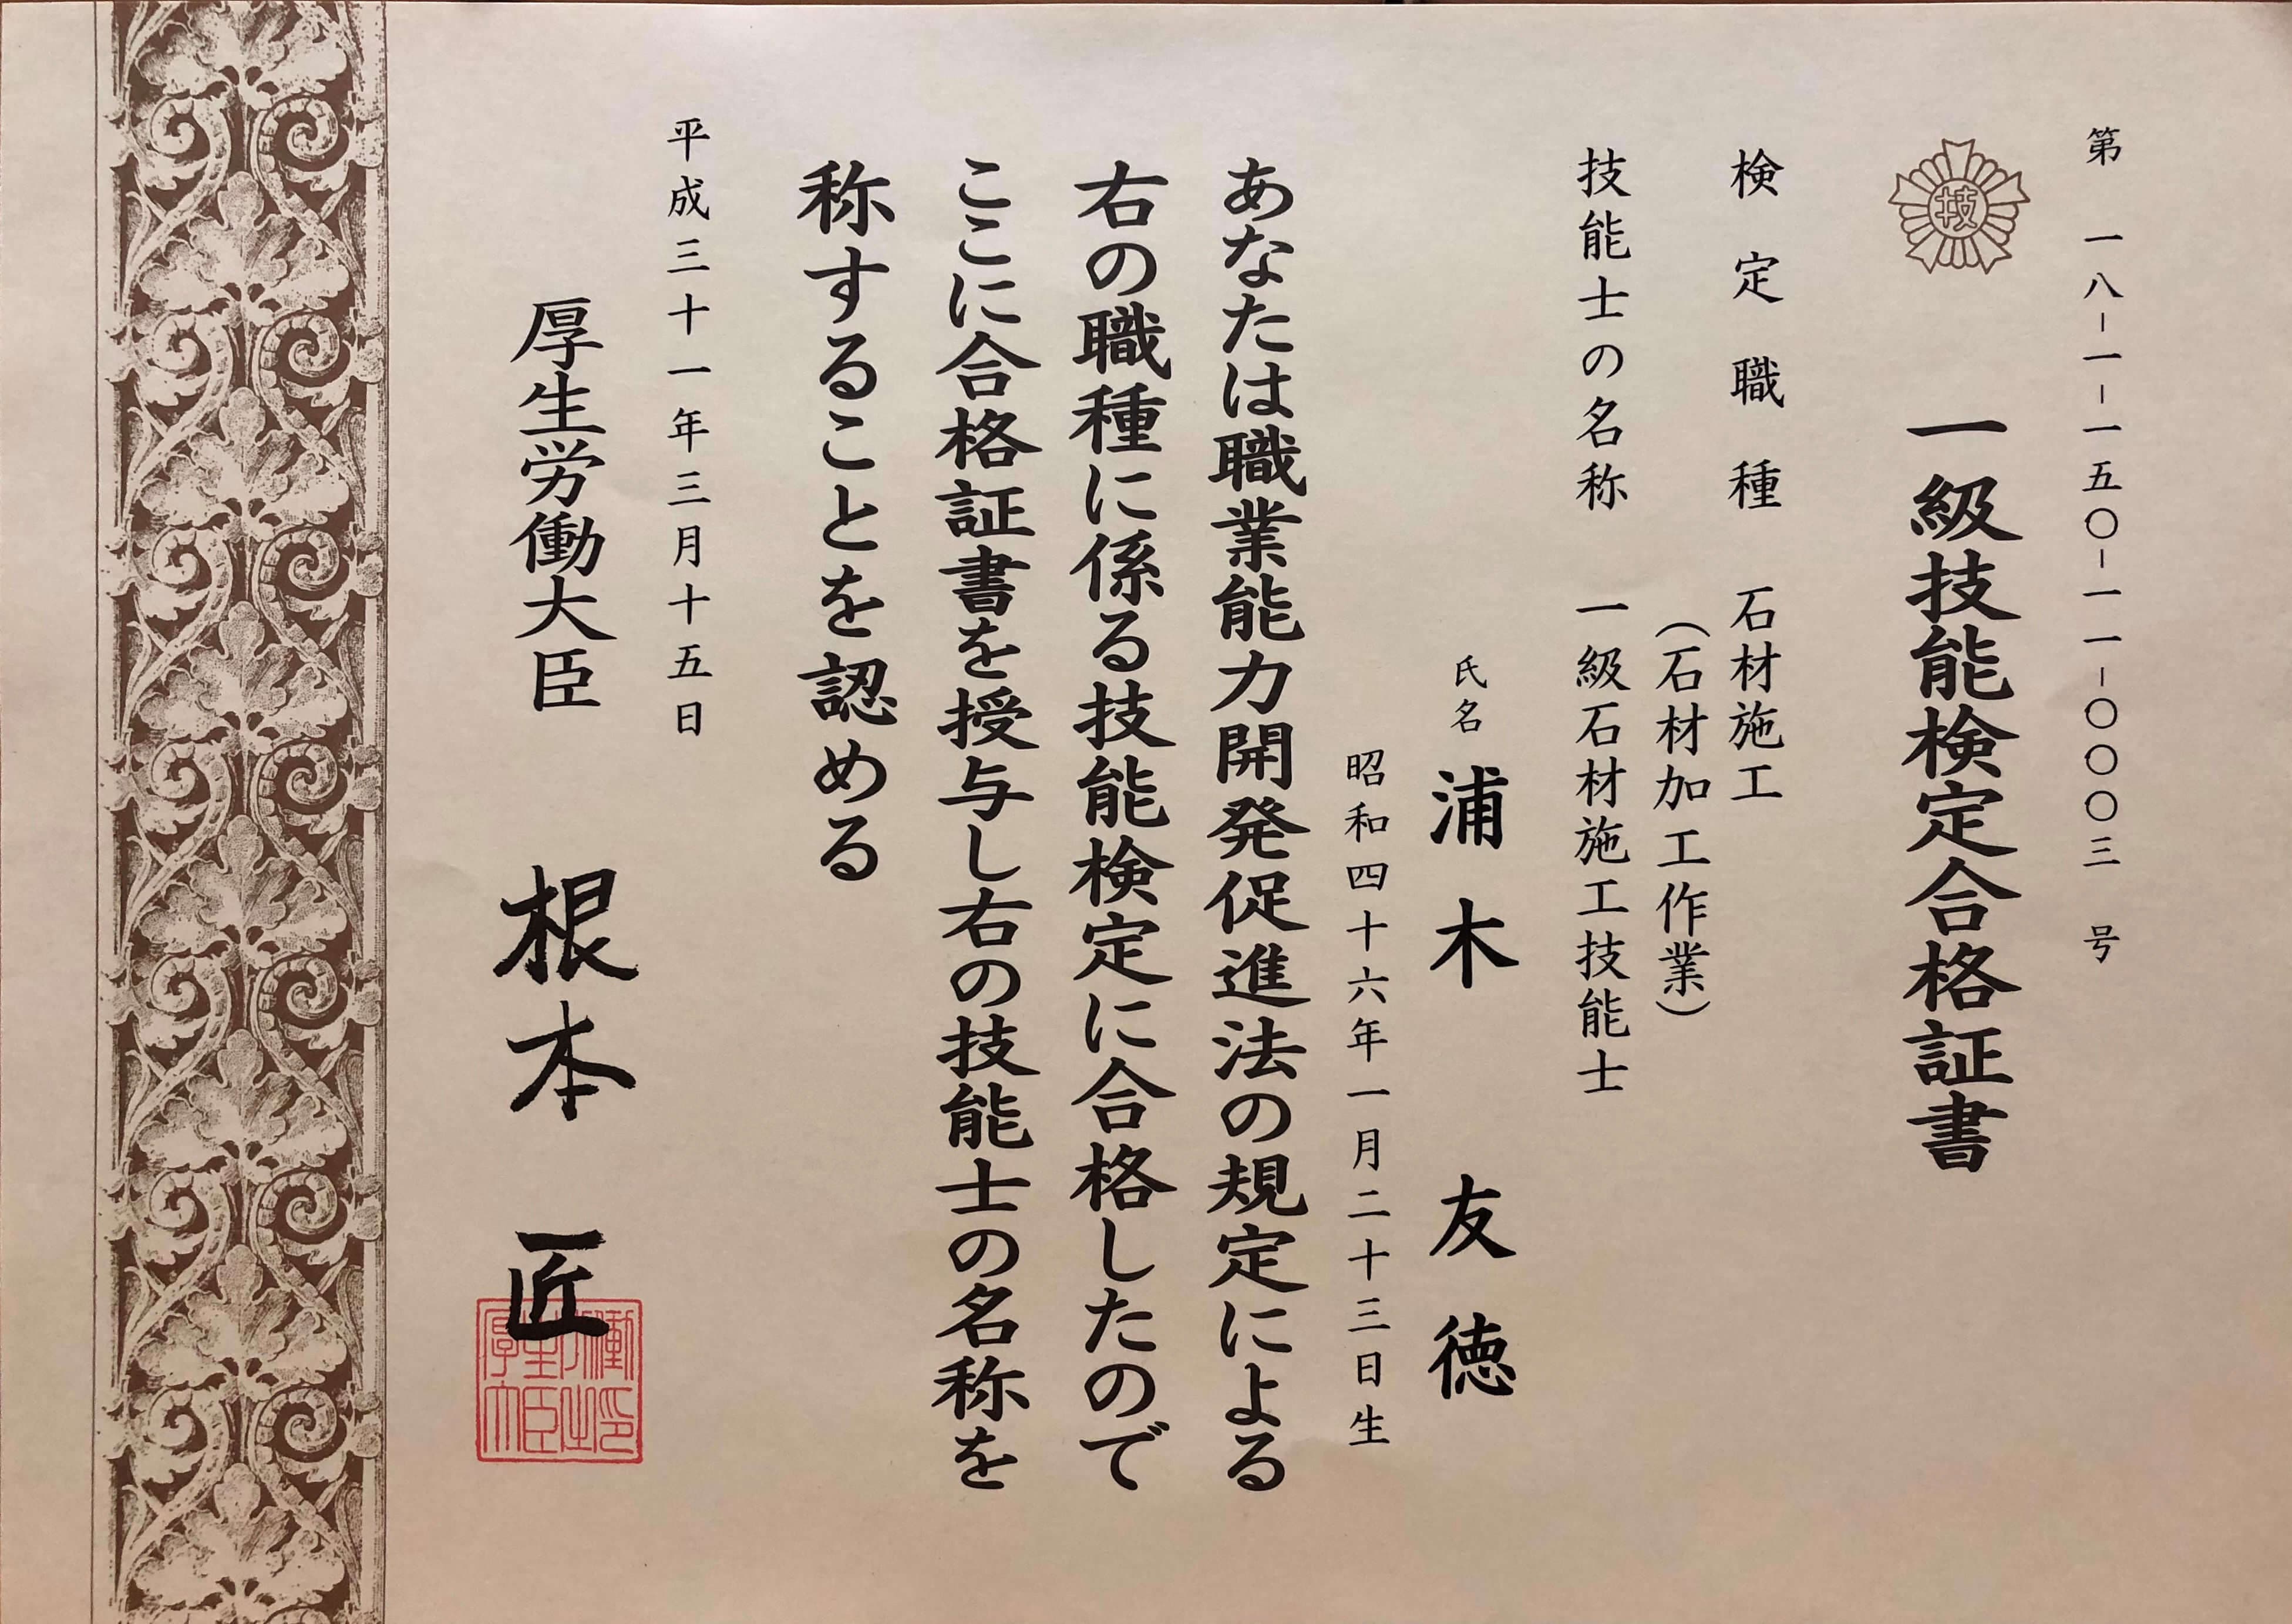 第 一八-一-一五〇-一一-〇〇〇三 号
技
一級技能検定合格証書
検定職種 石材施工
（石材加工作業）
技能士の名称 一級石材施工技能士
氏名 浦木 友徳
昭和四十六年一月二十三日生
あなたは職業能力開発促進法の規定による
右の職種に係る技能検定に合格したので
ここに合格証書を授与し右の技能士の名称を
称することを認める
平成三十一年三月十五日
厚生労働大臣 根本 匠